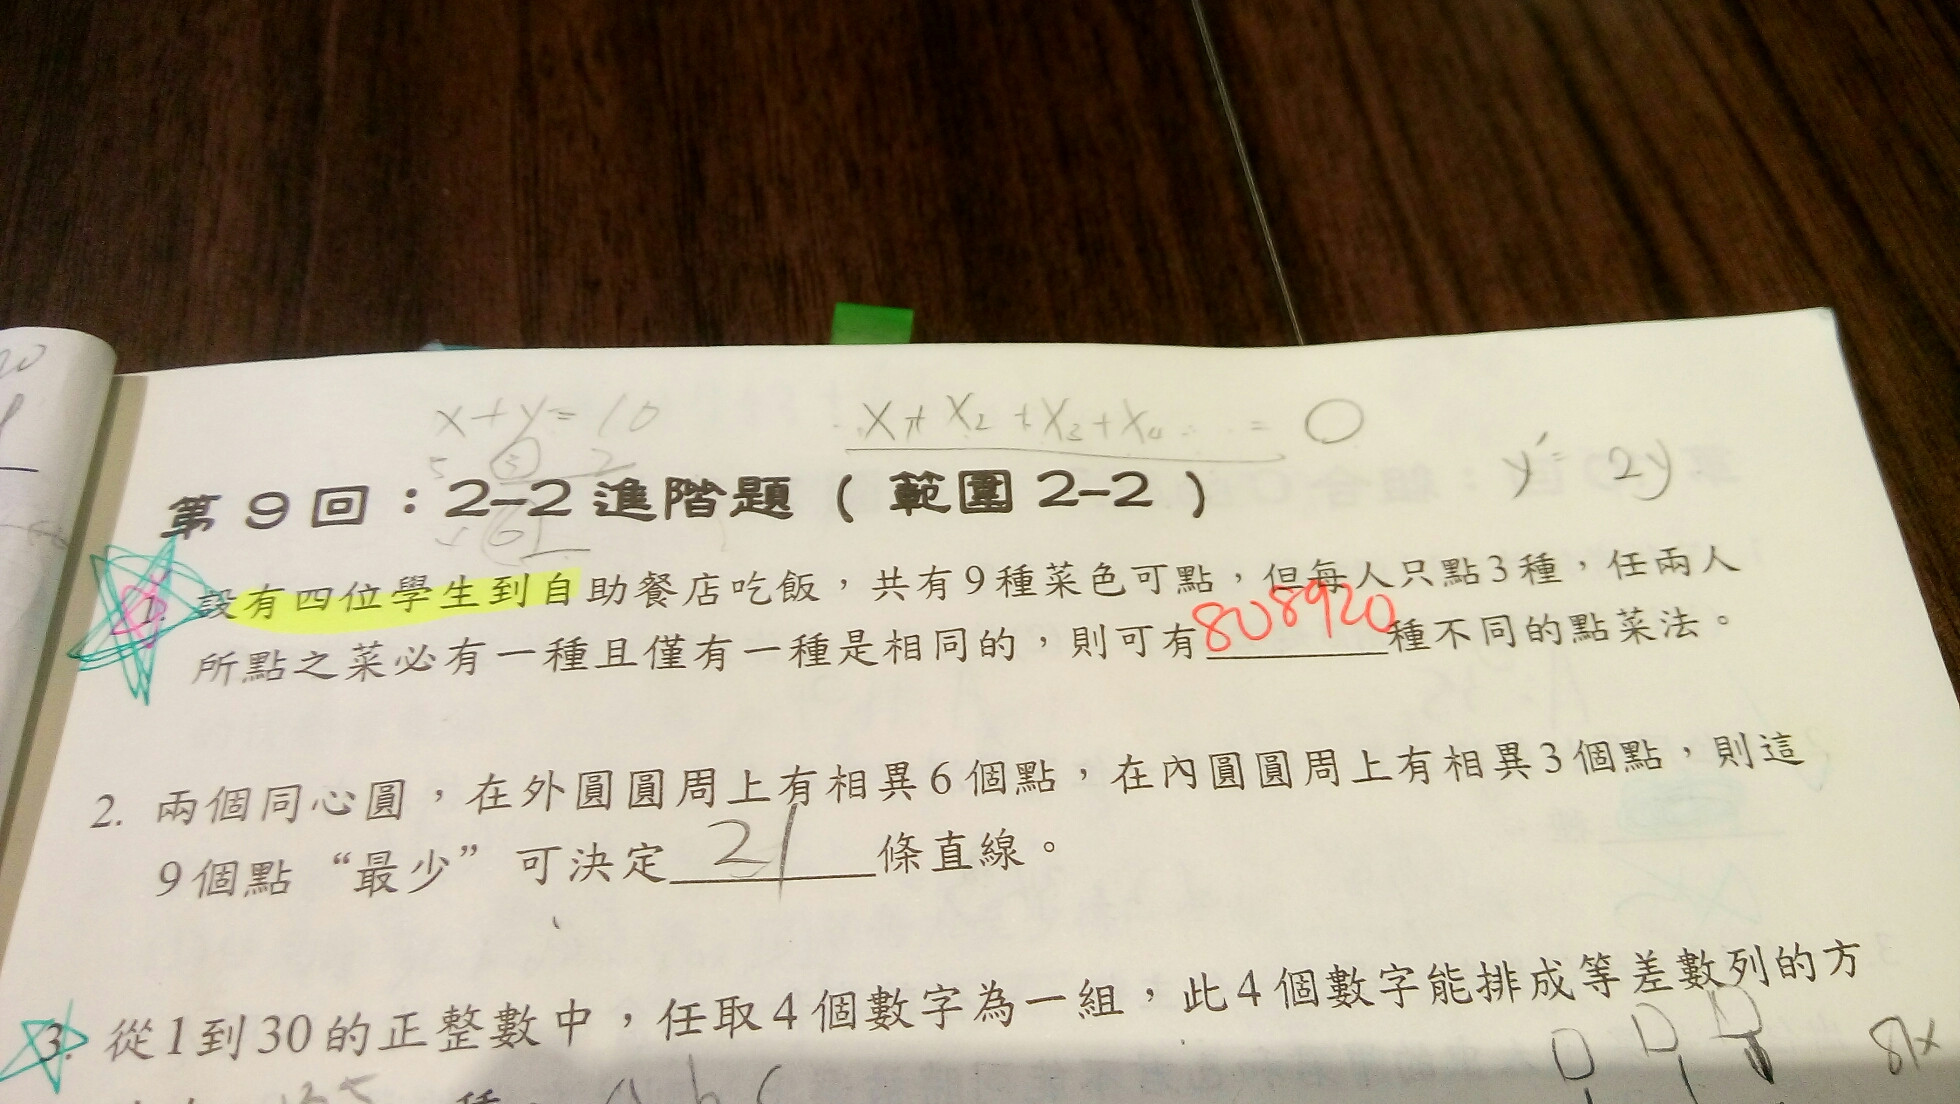 x+y=10
x₁+x₂+x₃+x₄ = 0
y'=2y
第9回：2-2進階題（範圍2-2）
1. 設有四位學生到自助餐店吃飯，共有9種菜色可點，但每人只點3種，任兩人
所點之菜必有一種且僅有一種是相同的，則可有808920種不同的點菜法。
2. 兩個同心圓，在外圓圓周上有相異6個點，在內圓圓周上有相異3個點，則這
9個點“最少”可決定21條直線。
3. 從1到30的正整數中，任取4個數字為一組，此4個數字能排成等差數列的方
種
a b c